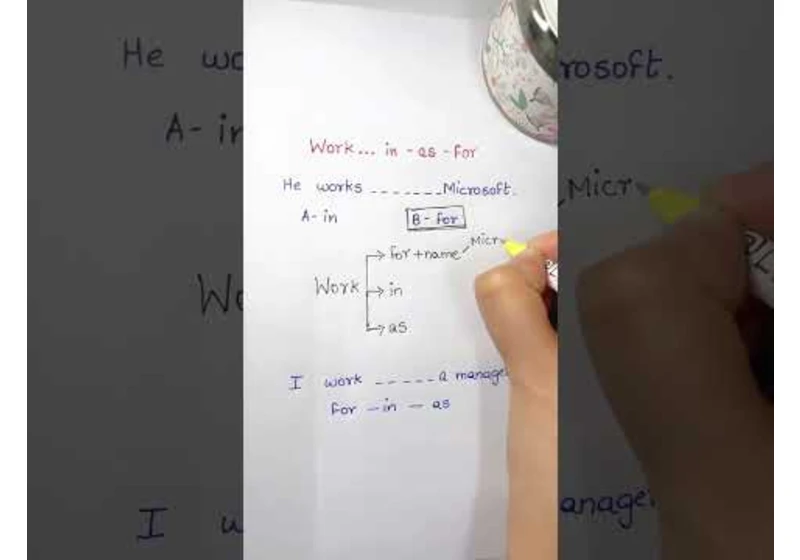 Work... in - as - for
He works _ _ _ _ _ _ _ Microsoft.
A- in B- for
for + name Micr
Work in
as
I work _ _ _ _ _ a manage
for - in - as